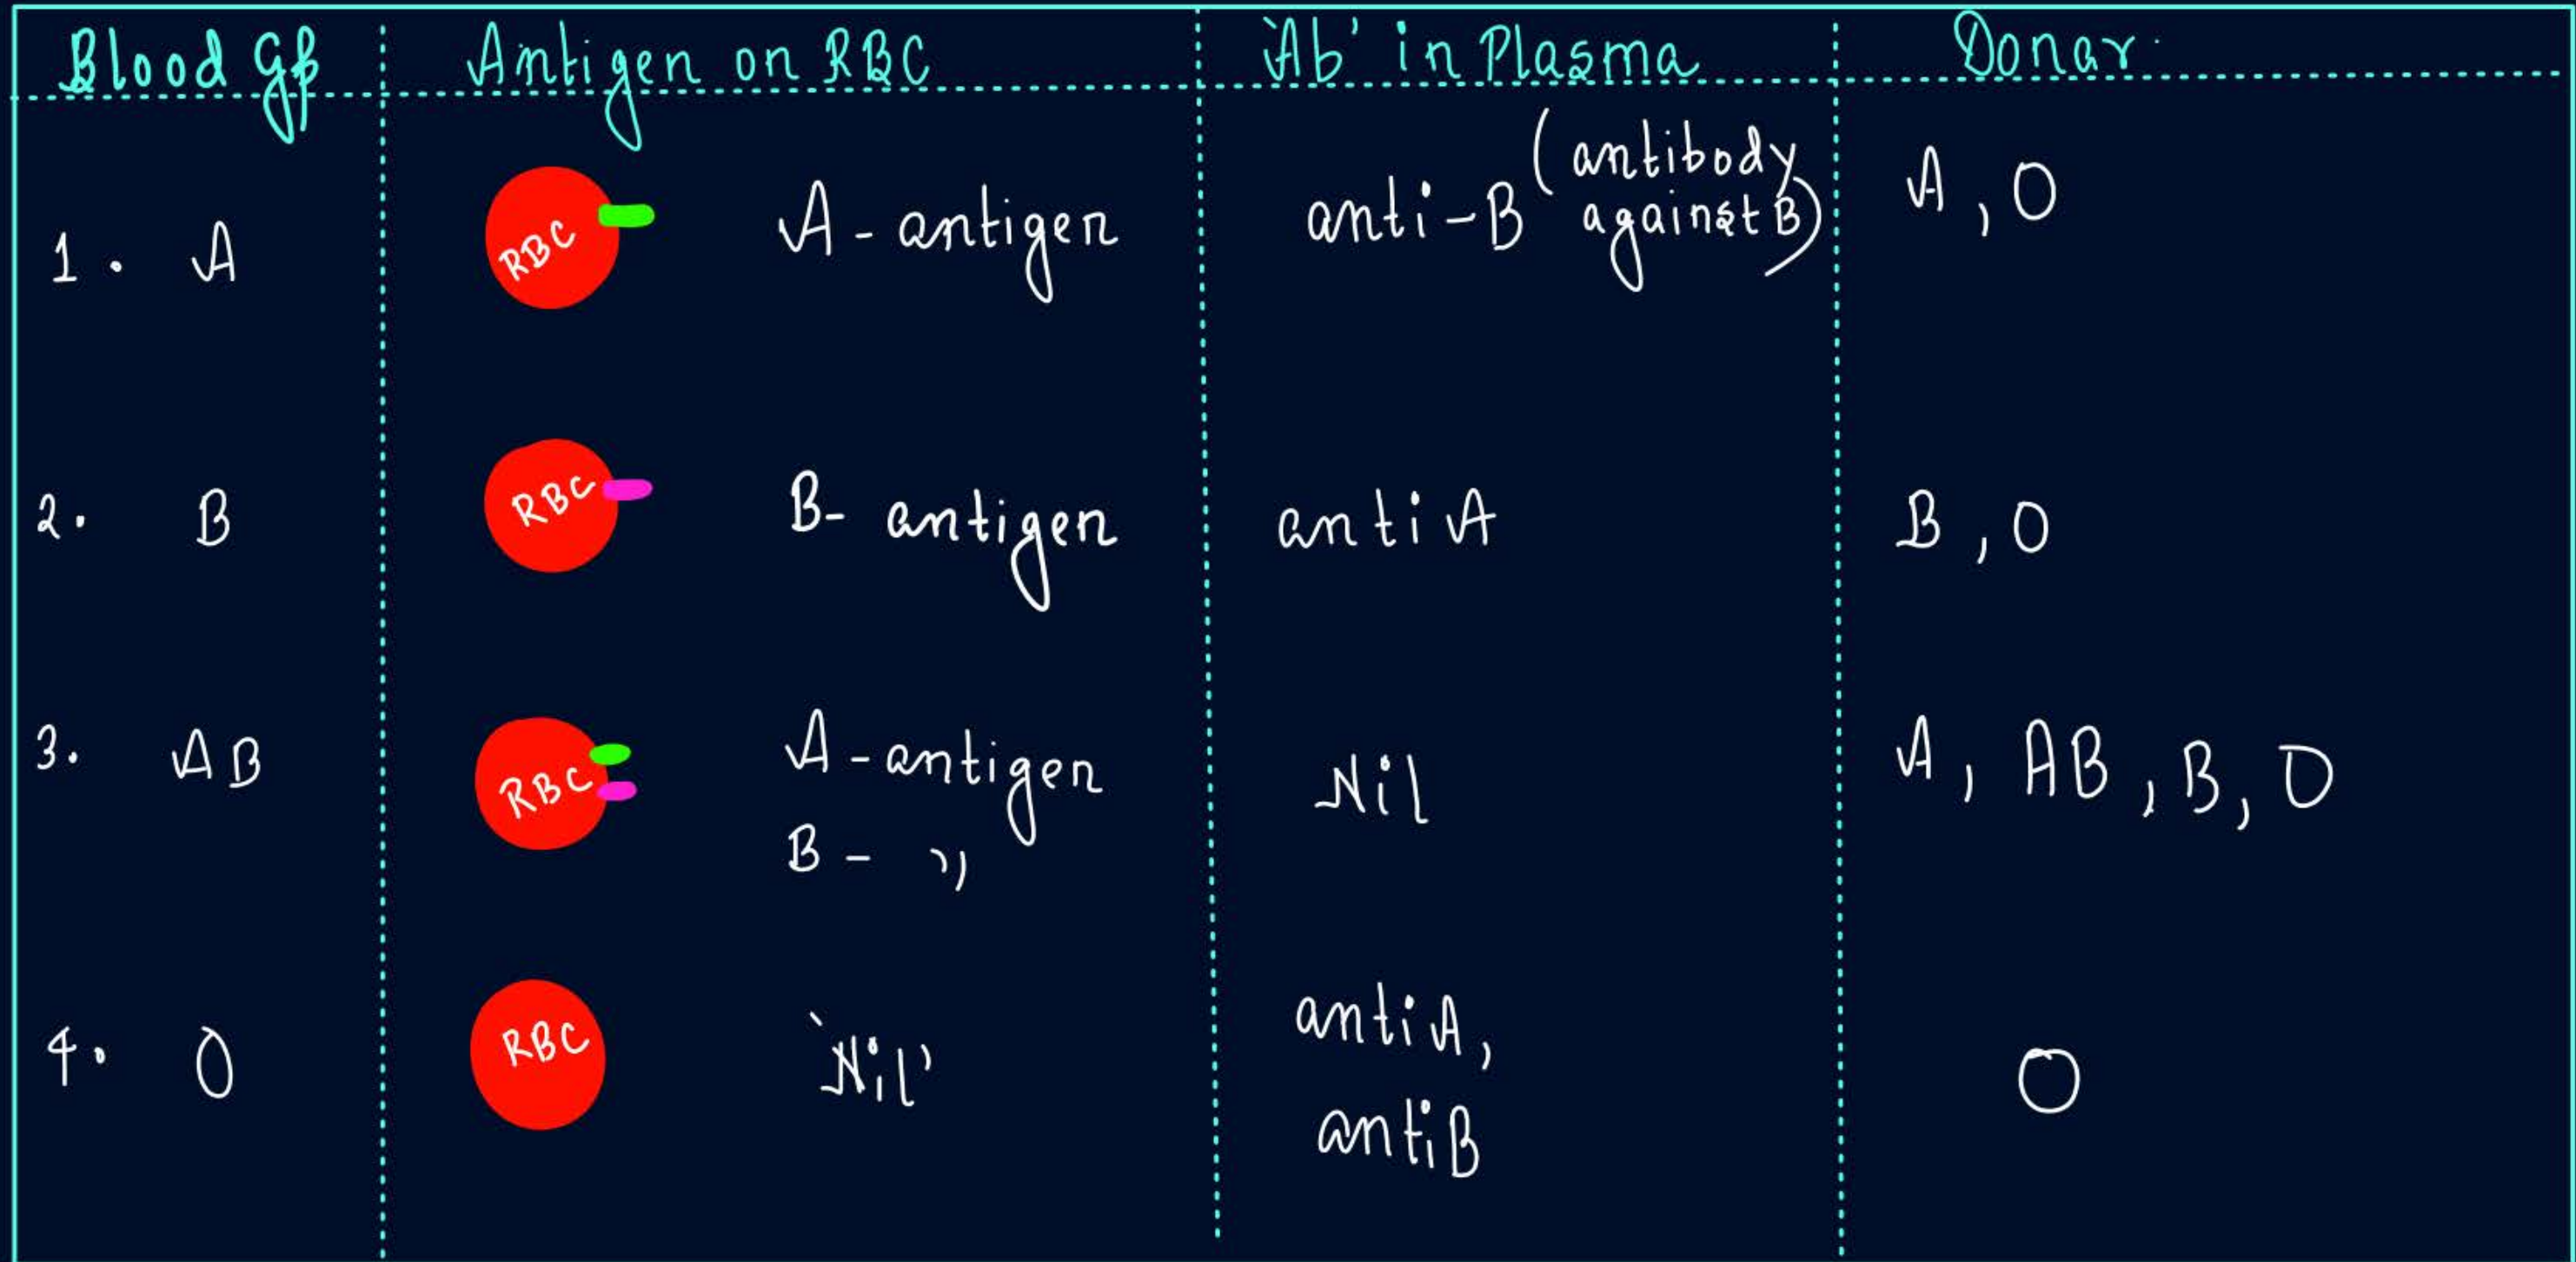 Blood gp Antigen on RBC 'Ab' in Plasma Donar
1. A RBC A - antigen anti-B (antibody against B) A, O
2. B RBC B- antigen anti A B, O
3. AB RBC A - antigen Nil A, AB, B, O
B - ,,
4. O RBC 'Nil' anti A, O
anti B